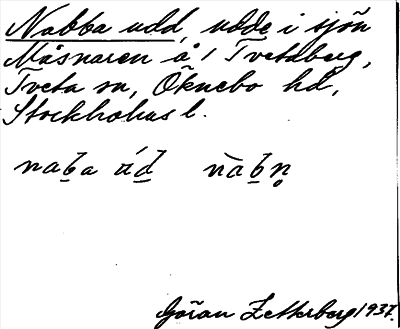 Nabba udd, udde i sjön
Måsnaren å / Tvetaberg,
Tveta sn, Öknebo hd,
Stockholms l.
Göran Zetterberg 1937.